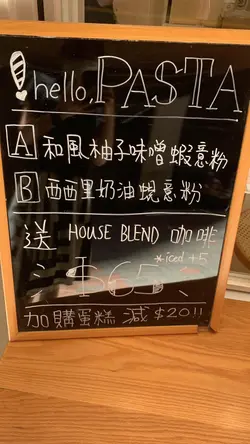 ! hello, PASTA
A 和風柚子味噌蝦意粉
B 西西里奶油蜆意粉
送 HOUSE BLEND 咖啡
*iced +5
$65
加購蛋糕減 $20!!